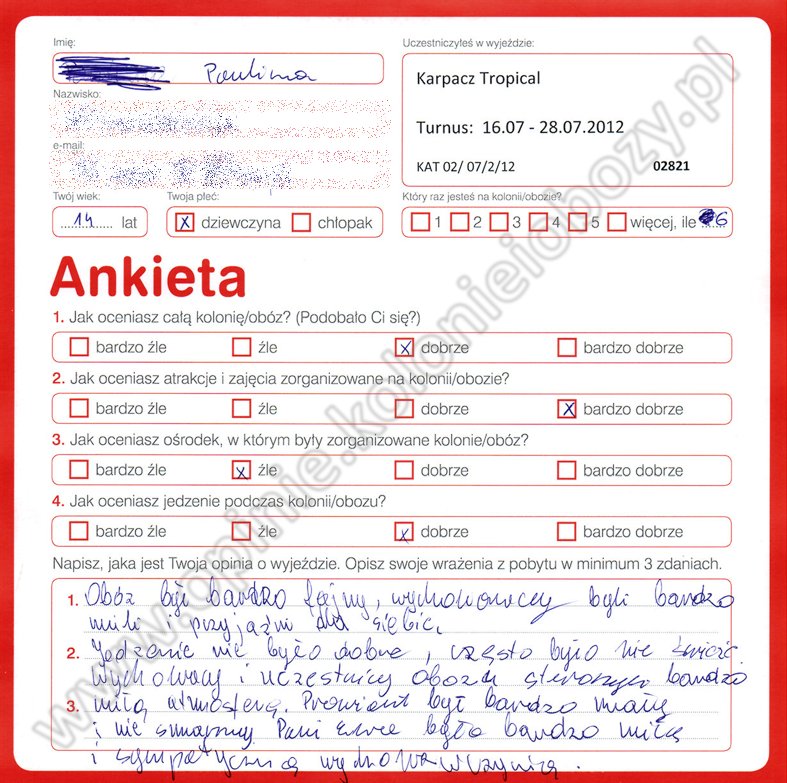 Imię:
Paulina
Nazwisko:
e-mail:
Twój wiek:
14 lat
Twoja płeć:
x dziewczyna chłopak
Uczestniczyłeś w wyjeździe:
Karpacz Tropical
Turnus: 16.07 - 28.07.2012
KAT 02/ 07/2/12 02821
Który raz jesteś na kolonii/obozie?
1 2 3 4 5 więcej, ile 6
Ankieta
1. Jak oceniasz całą kolonię/obóz? (Podobało Ci się?)
bardzo źle źle x dobrze bardzo dobrze
2. Jak oceniasz atrakcje i zajęcia zorganizowane na kolonii/obozie?
bardzo źle źle dobrze x bardzo dobrze
3. Jak oceniasz ośrodek, w którym były zorganizowane kolonie/obóz?
bardzo źle x źle dobrze bardzo dobrze
4. Jak oceniasz jedzenie podczas kolonii/obozu?
bardzo źle źle x dobrze bardzo dobrze
Napisz, jaka jest Twoja opinia o wyjeździe. Opisz swoje wrażenia z pobytu w minimum 3 zdaniach.
1. Obóz był bardzo fajny, wychowawcy byli bardzo
mili i przyjaźni dla siebie.
2. Jedzenie nie było dobre, często było nie świeże
Wychowacy i uczestnicy obozu stworzyli bardzo
3. miłą atmosferę. Prowiant był bardzo mały
i nie smaczny Pani była bardzo miłą
i sympatyczną wychowawczynią.
www.opinie.kolonieiobozy.pl